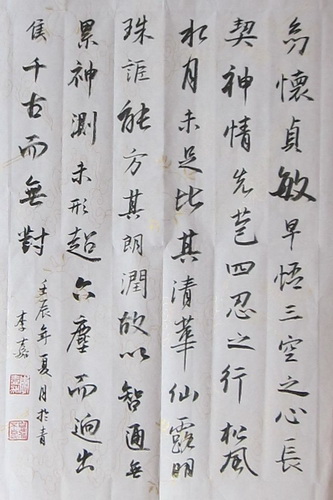 幼懷貞敏早悟三空之心長
契神情先苞四忍之行松風
水月未足比其清華仙露明
珠詎能方其朗潤故以智通無
累神測未形超六塵而迥出
隻千古而無對
壬辰年夏月於青
李嘉